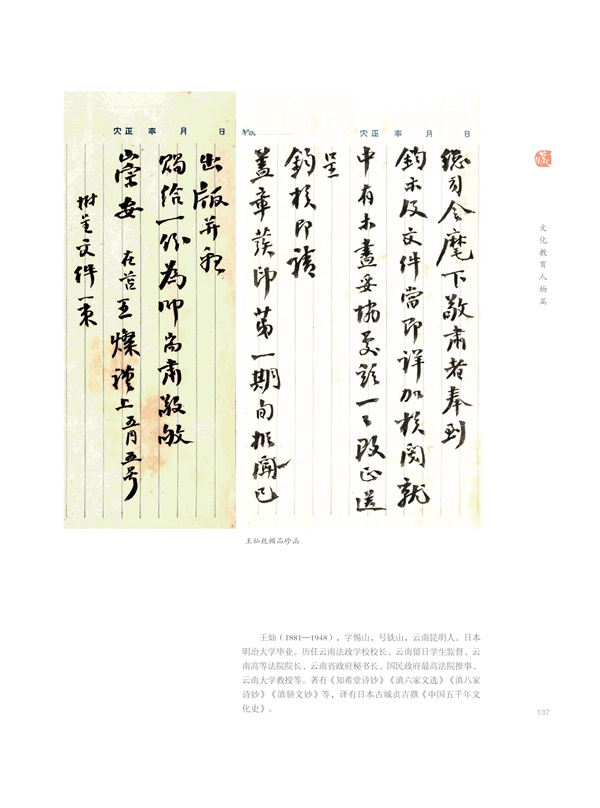 大正 年 月 日
No.
大正 年 月 日
總司令麾下敬肅者奉到
鈞示及文件當即詳加核閱就
中有未盡妥協處一一改正送
呈
鈞核即請
蓋章發印第一期旬報聞已
出版并祈
賜給一份為叩尚肅敬敂
崇安 王燦謹上五月五号
附呈文件一束
文化教育人物篇
王灿致顾品珍函
王灿（1881—1948），字惕山，号铁山，云南昆明人。日本
明治大学毕业。历任云南法政学校校长、云南留日学生监督、云
南高等法院院长、云南省政府秘书长、国民政府最高法院推事、
云南大学教授等。著有《知希堂诗钞》《滇六家文选》《滇八家
诗钞》《滇骈文钞》等，译有日本古城贞吉撰《中国五千年文
化史》。
137